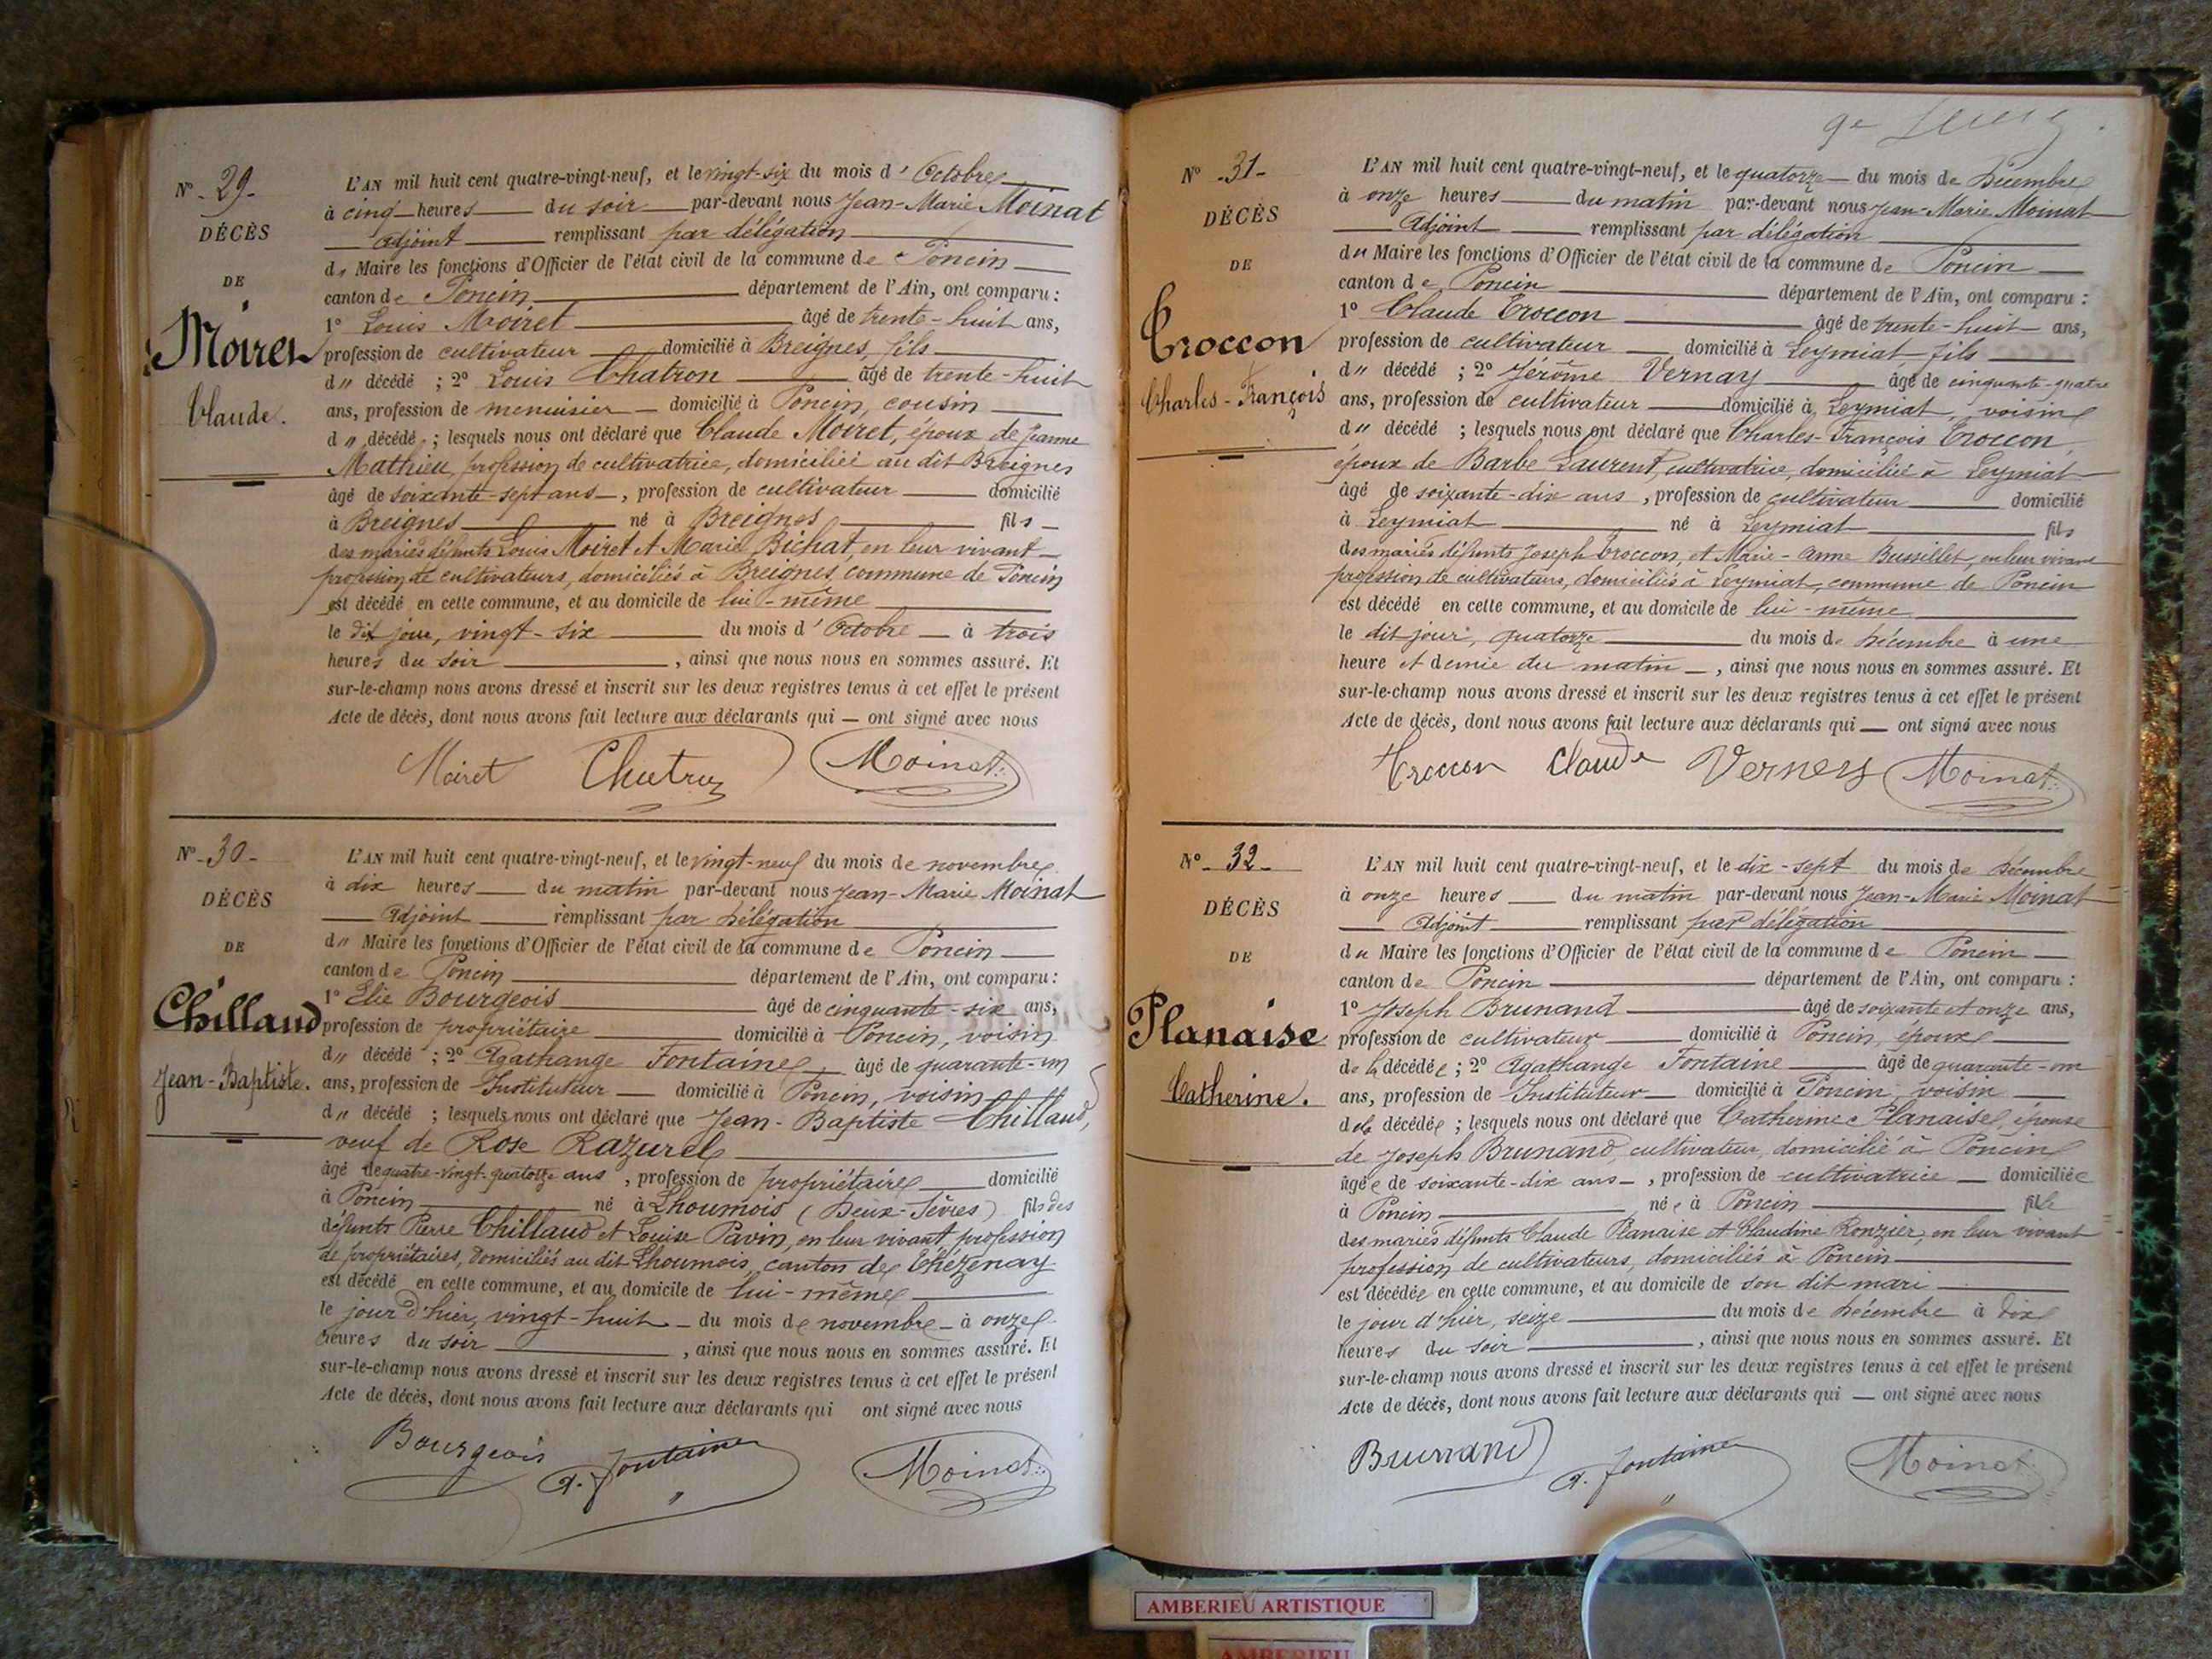 N° - 29 -
DÉCÈS
DE
Moiret
Claude.
L'AN mil huit cent quatre-vingt-neuf, et le vingt-six du mois d' Octobre
à cinq heures du soir par-devant nous Jean-Marie Moinat
Adjoint remplissant par délégation
du Maire les fonctions d'Officier de l'état civil de la commune de Poncin
canton de Poncin département de l'Ain, ont comparu :
1° Louis Moiret âgé de trente-huit ans,
profession de cultivateur domicilié à Breignes, fils
du décédé ; 2° Louis Chatron âgé de trente-huit
ans, profession de menuisier domicilié à Poncin, cousin
du décédé ; lesquels nous ont déclaré que Claude Moiret, époux de Jeanne
Mathieu, profession de cultivatrice, domiciliée au dit Breignes
âgé de soixante-sept ans, profession de cultivateur domicilié
à Breignes né à Breignes fils
des mariés défunts Louis Moiret et Marie Bichat, en leur vivant
profession de cultivateurs, domiciliés à Breignes, commune de Poncin
est décédé en cette commune, et au domicile de lui-même
le dit jour, vingt-six du mois d' Octobre à trois
heures du soir, ainsi que nous nous en sommes assuré. Et
sur-le-champ nous avons dressé et inscrit sur les deux registres tenus à cet effet le présent
Acte de décès, dont nous avons fait lecture aux déclarants qui — ont signé avec nous
Moiret Chatron Moinat
N° - 30 -
DÉCÈS
DE
Chillaud
Jean-Baptiste.
L'AN mil huit cent quatre-vingt-neuf, et le vingt-neuf du mois de novembre
à dix heures du matin par-devant nous Jean-Marie Moinat
Adjoint remplissant par délégation
du Maire les fonctions d'Officier de l'état civil de la commune de Poncin
canton de Poncin département de l'Ain, ont comparu :
1° Elie Bourgeois âgé de cinquante-six ans,
profession de propriétaire domicilié à Poncin, voisin
du décédé ; 2° Agathange Fontaine âgé de quarante-un
ans, profession de Instituteur domicilié à Poncin, voisin
du décédé ; lesquels nous ont déclaré que Jean-Baptiste Chillaud,
veuf de Rose Razurel
âgé de quatre-vingt-quatorze ans, profession de propriétaire domicilié
à Poncin né à Lhoumois (Deux-Sèvres) fils des
défunts Pierre Chillaud et Louise Pavin, en leur vivant profession
de propriétaires, domiciliés au dit Lhoumois, canton de Thézenay
est décédé en cette commune, et au domicile de lui-même
le jour d'hier, vingt-huit du mois de novembre à onze
heures du soir, ainsi que nous nous en sommes assuré. Et
sur-le-champ nous avons dressé et inscrit sur les deux registres tenus à cet effet le présent
Acte de décès, dont nous avons fait lecture aux déclarants qui ont signé avec nous
Bourgeois A. Fontaine Moinat
N° - 31 -
DÉCÈS
DE
Troccon
Charles-François
L'AN mil huit cent quatre-vingt-neuf, et le quatorze du mois de Décembre
à onze heures du matin par-devant nous Jean-Marie Moinat
Adjoint remplissant par délégation
du Maire les fonctions d'Officier de l'état civil de la commune de Poncin
canton de Poncin département de l'Ain, ont comparu :
1° Claude Troccon âgé de trente-huit ans,
profession de cultivateur domicilié à Leymiat fils
du décédé ; 2° Jérôme Vernay âgé de cinquante-quatre
ans, profession de cultivateur domicilié à Leymiat, voisin
du décédé ; lesquels nous ont déclaré que Charles-François Troccon,
époux de Barbe Laurent, cultivatrice, domiciliée à Leymiat
âgé de soixante-dix ans, profession de cultivateur domicilié
à Leymiat né à Leymiat fils
des mariés défunts Joseph Troccon, et Marie-Anne Bussillet, en leur vivant
profession de cultivateurs, domiciliés à Leymiat, commune de Poncin
est décédé en cette commune, et au domicile de lui-même
le dit jour, quatorze du mois de Décembre à une
heure et demie du matin, ainsi que nous nous en sommes assuré. Et
sur-le-champ nous avons dressé et inscrit sur les deux registres tenus à cet effet le présent
Acte de décès, dont nous avons fait lecture aux déclarants qui — ont signé avec nous
Troccon Claude Verney Moinat
N° - 32 -
DÉCÈS
DE
Planaise
Catherine.
L'AN mil huit cent quatre-vingt-neuf, et le dix-sept du mois de Décembre
à onze heures du matin par-devant nous Jean-Marie Moinat
Adjoint remplissant par délégation
du Maire les fonctions d'Officier de l'état civil de la commune de Poncin
canton de Poncin département de l'Ain, ont comparu :
1° Joseph Brunand âgé de soixante et onze ans,
profession de cultivateur domicilié à Poncin, époux
de la décédée ; 2° Agathange Fontaine âgé de quarante-un
ans, profession de Instituteur domicilié à Poncin, voisin
de la décédée ; lesquels nous ont déclaré que Catherine Planaise, épouse
de Joseph Brunand, cultivateur, domicilié à Poncin
âgée de soixante-dix ans, profession de cultivatrice domiciliée
à Poncin née à Poncin fille
des mariés défunts Claude Planaise et Claudine Ronzier, en leur vivant
profession de cultivateurs, domiciliés à Poncin
est décédée en cette commune, et au domicile de son dit mari
le jour d'hier, seize du mois de Décembre à dix
heures du soir, ainsi que nous nous en sommes assuré. Et
sur-le-champ nous avons dressé et inscrit sur les deux registres tenus à cet effet le présent
Acte de décès, dont nous avons fait lecture aux déclarants qui — ont signé avec nous
Brunand A. Fontaine Moinat
AMBERIEU ARTISTIQUE
AMBERIEU